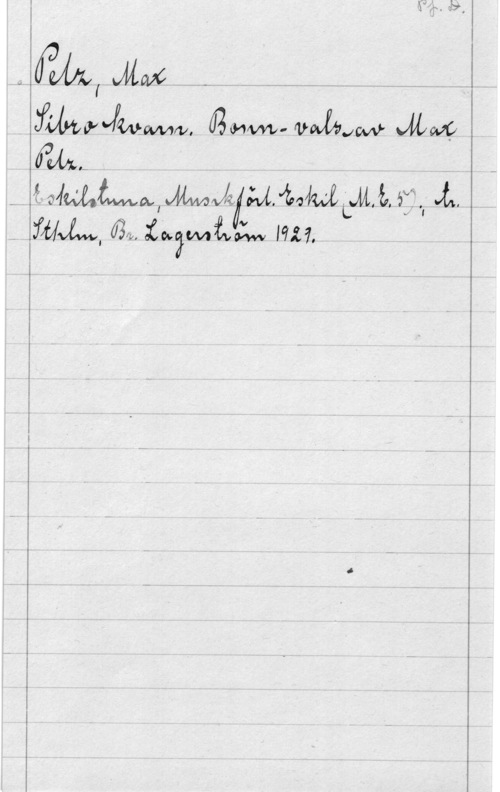 Pf. D.
Pelz, Max
Sibro kvarn. Bonn-vals av Max
Pelz.
Eskilstuna, Musikförl. Eskil (M.E. 5); tr.
Sthlm, Br. Lagerström 1927.